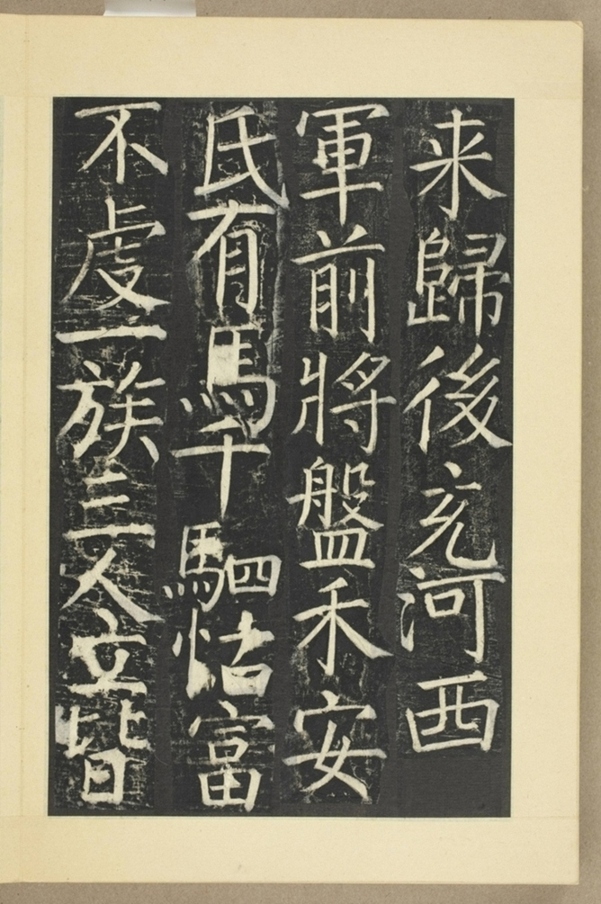 来歸後充河西
軍前將盤禾安
氏有馬千駟怙富
不虔一族三人立皆